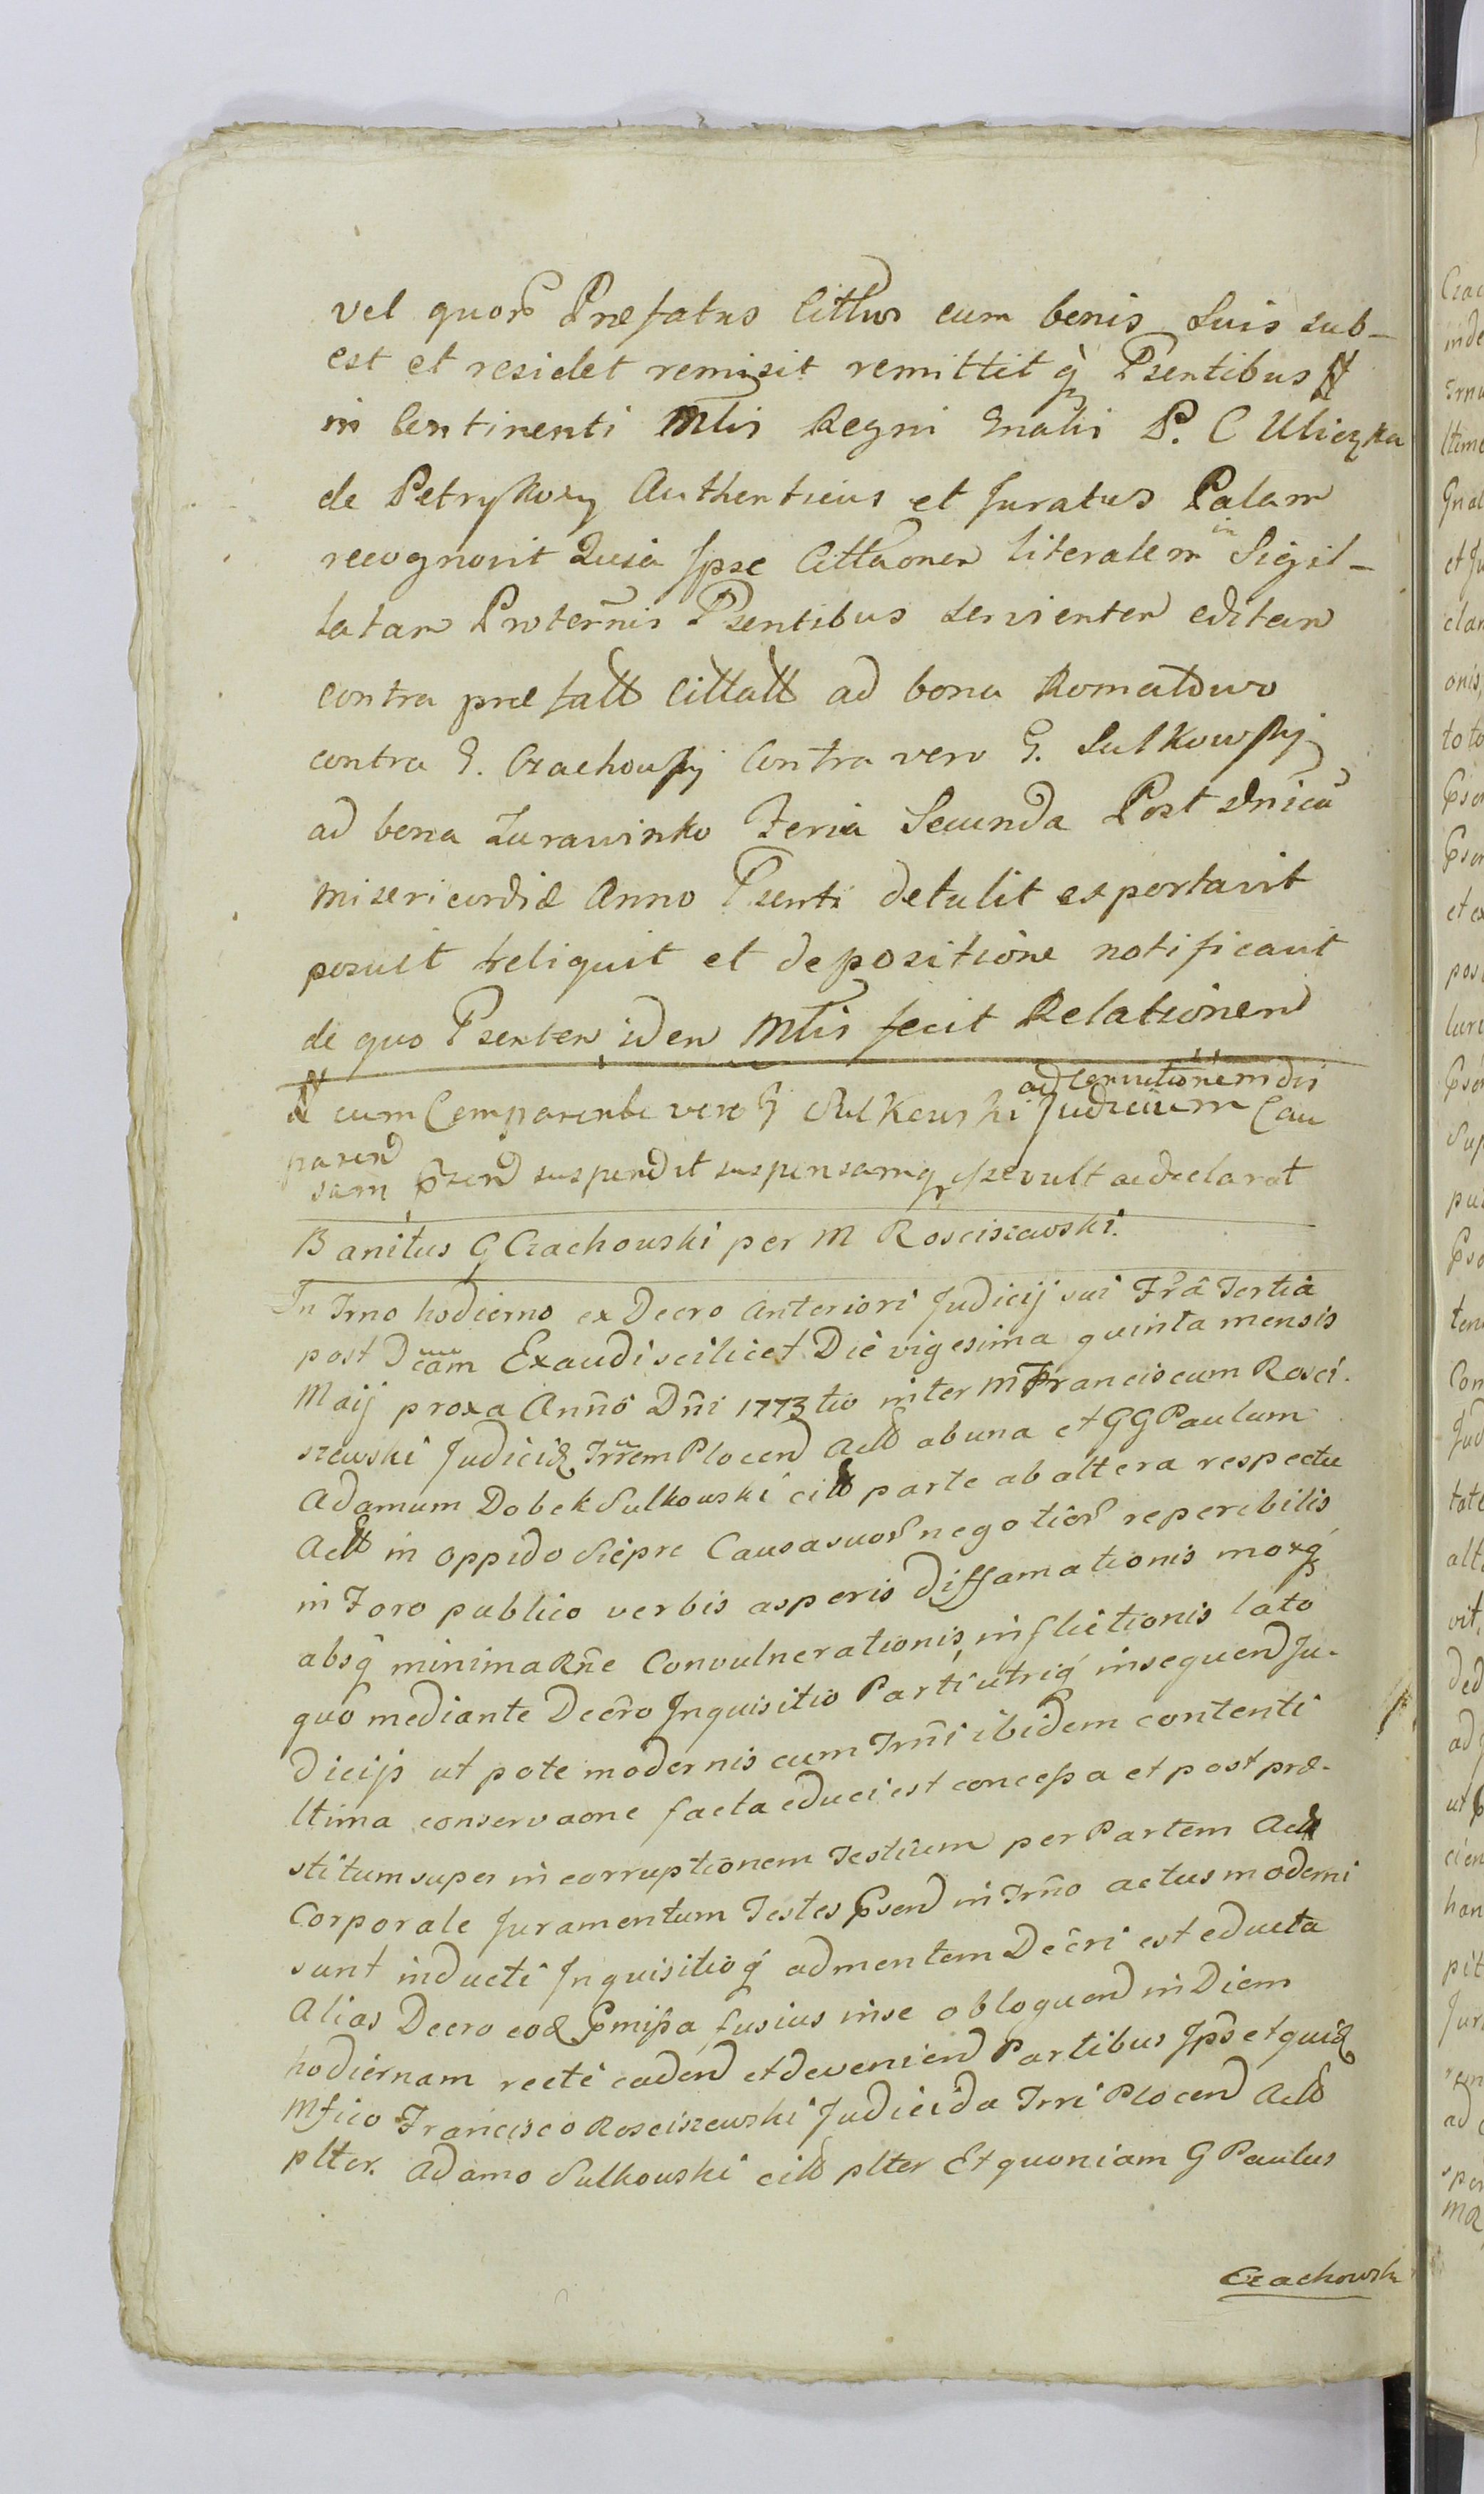 vel quor Præfatus Cittus cum bonis Suis sub-
est et residet remisit remittit q Psentibus
in Continenti Mtis Regni Gnalis P. C Uliczka
de Petrykozy Authenticus et Juratus Palam
recognovit Quia Ipse Cittaonen literalem in Sigil-
latam Pro termis Psentibus Servienten editam
contra præfatt Cittatt ad bona Romatowo
contra G. Czachowski Contra vero G. Sulkowski
ad bona Zurawinko Feria Secunda Post dnicā
misericordiæ Anno Psenti detulit exportavit
posuit reliquit et depositione notificavit
de quo Psenten iden Mtis fecit Relationem
cum Comparente vero G Sulkowski Judicium ad Convictionem Cau
sam Psend suspendit suspensamq esse vult ac declarat
Banitus G Czachowski per M Rosciszewski.
In Trno hodierno ex Decro anteriori Judicij sui Frâ Tertia
post Dcam Exaudi scilicet Die vigesima quinta mensis
Maij proxa Anno Dni 1773tio inter M Franciscum Rosci-
szewski Judicid Trrem Plocen Act ab una et GG Paulum
Adamum Dobek Sulkowski citt parte ab altera respectu
Act in oppido Siepre Causa suor negotior reperibilis
in Foro publico verbis asperis diffamationis moxq
absq minima Rne Convulnerationis inflictionis lato
quo mediante Decro Inquisitio Parti utriq insequend Ju-
dicijs ut pote modernis cum Trni ibidem contenti
ltima conservaone facta educi est concessa et post præ-
stitum super incorruptionem Testium per Partem Act
Corporale Juramentum Testes Psend in Trno actus moderni
sunt inducti Inquisitioq ad mentem Decri est educta
Alias Decro eod Pmissa fusius in se obloquend in Diem
hodiernam recte cadend et deveniend Partibus Ipsis et quid
Mfico Francisco Rosciszewski Judicida Trri Plocen Act
plter. Adamo Sulkowski citt plter Et quoniam G Paulus
Czachowski